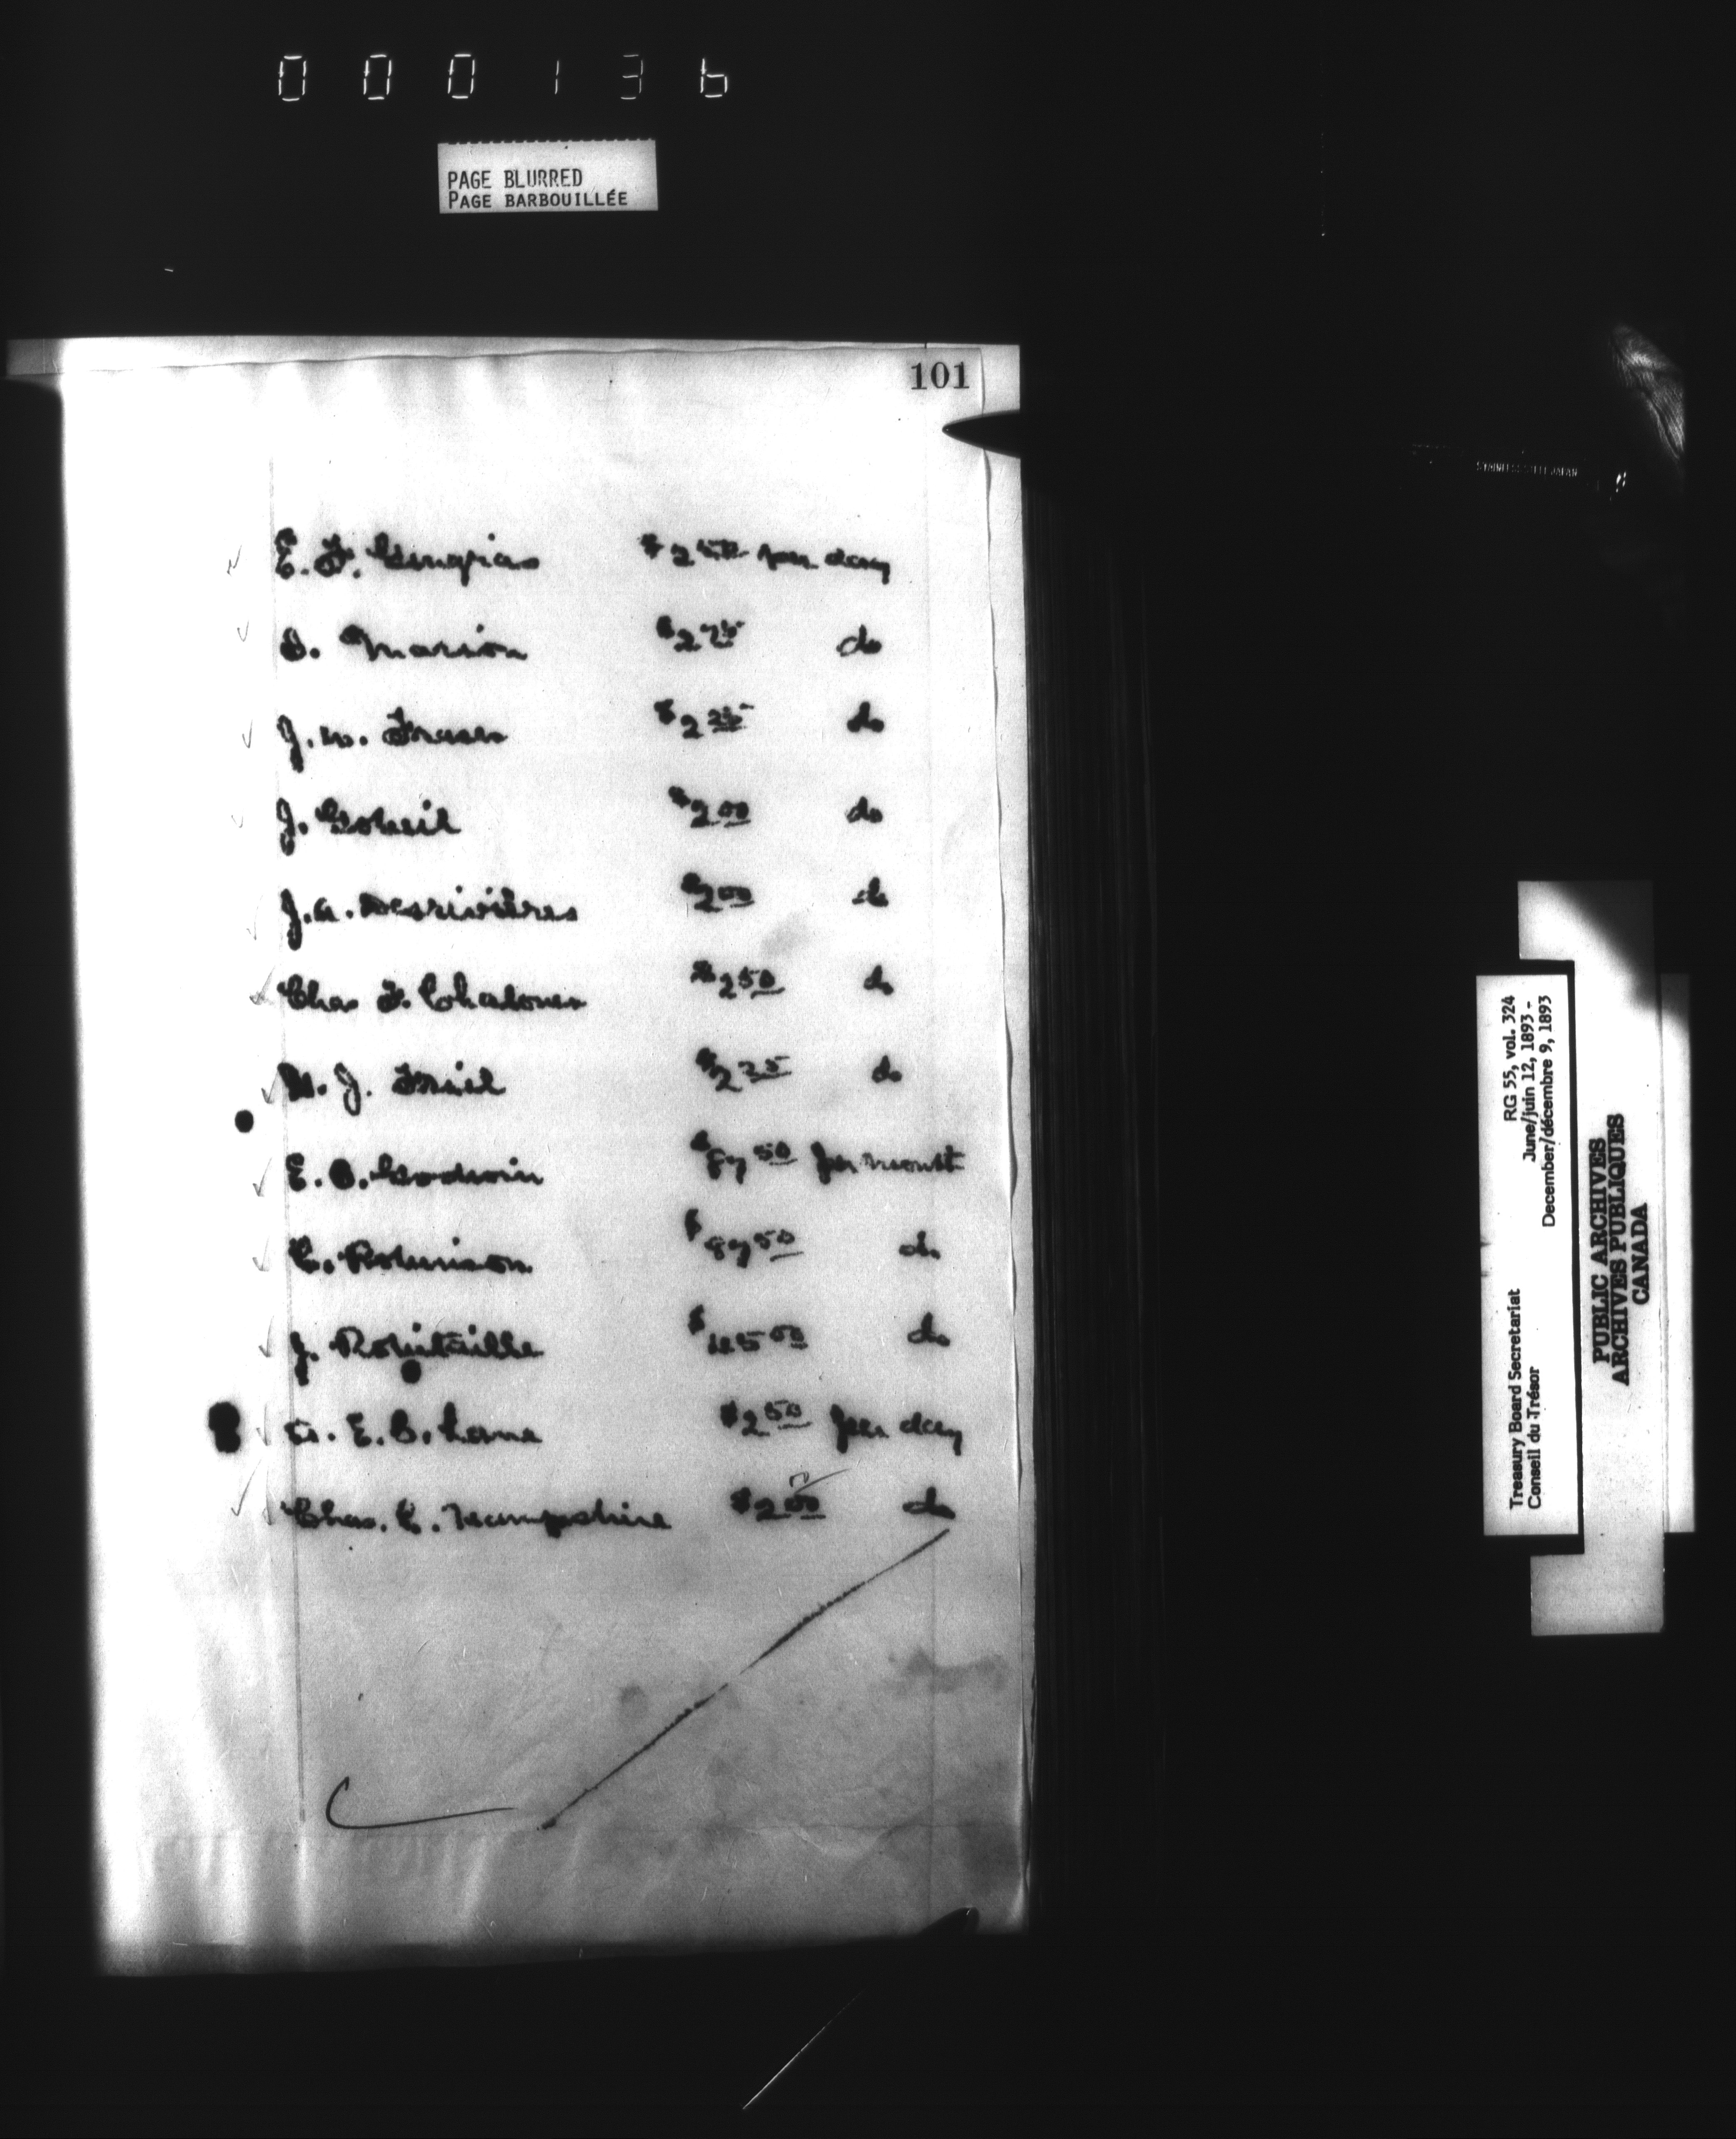 000136
PAGE BLURRED
PAGE BARBOUILLÉE
101
E. F. $2 50 per day
O. Marion $2 75 do
J. W. Fraser $2 25 do
J. Gobeil $2 00 do
J. A. Desrivières $2 00 do
Chas F. Chaloner $2 50 do
H. J. Friel $2 25 do
E. O. Goodwin $87 50 per month
C. Robinson $87 50 do
J. Robitaille $45 00 do
E. B. $2 50 per day
Chas. E. Hampshire $2 00 do
STAINLESS STEEL JAPAN
Treasury Board Secretariat RG 55, vol. 324
Conseil du Trésor June/juin 12, 1893 -
December/décembre 9, 1893
PUBLIC ARCHIVES
ARCHIVES PUBLIQUES
CANADA